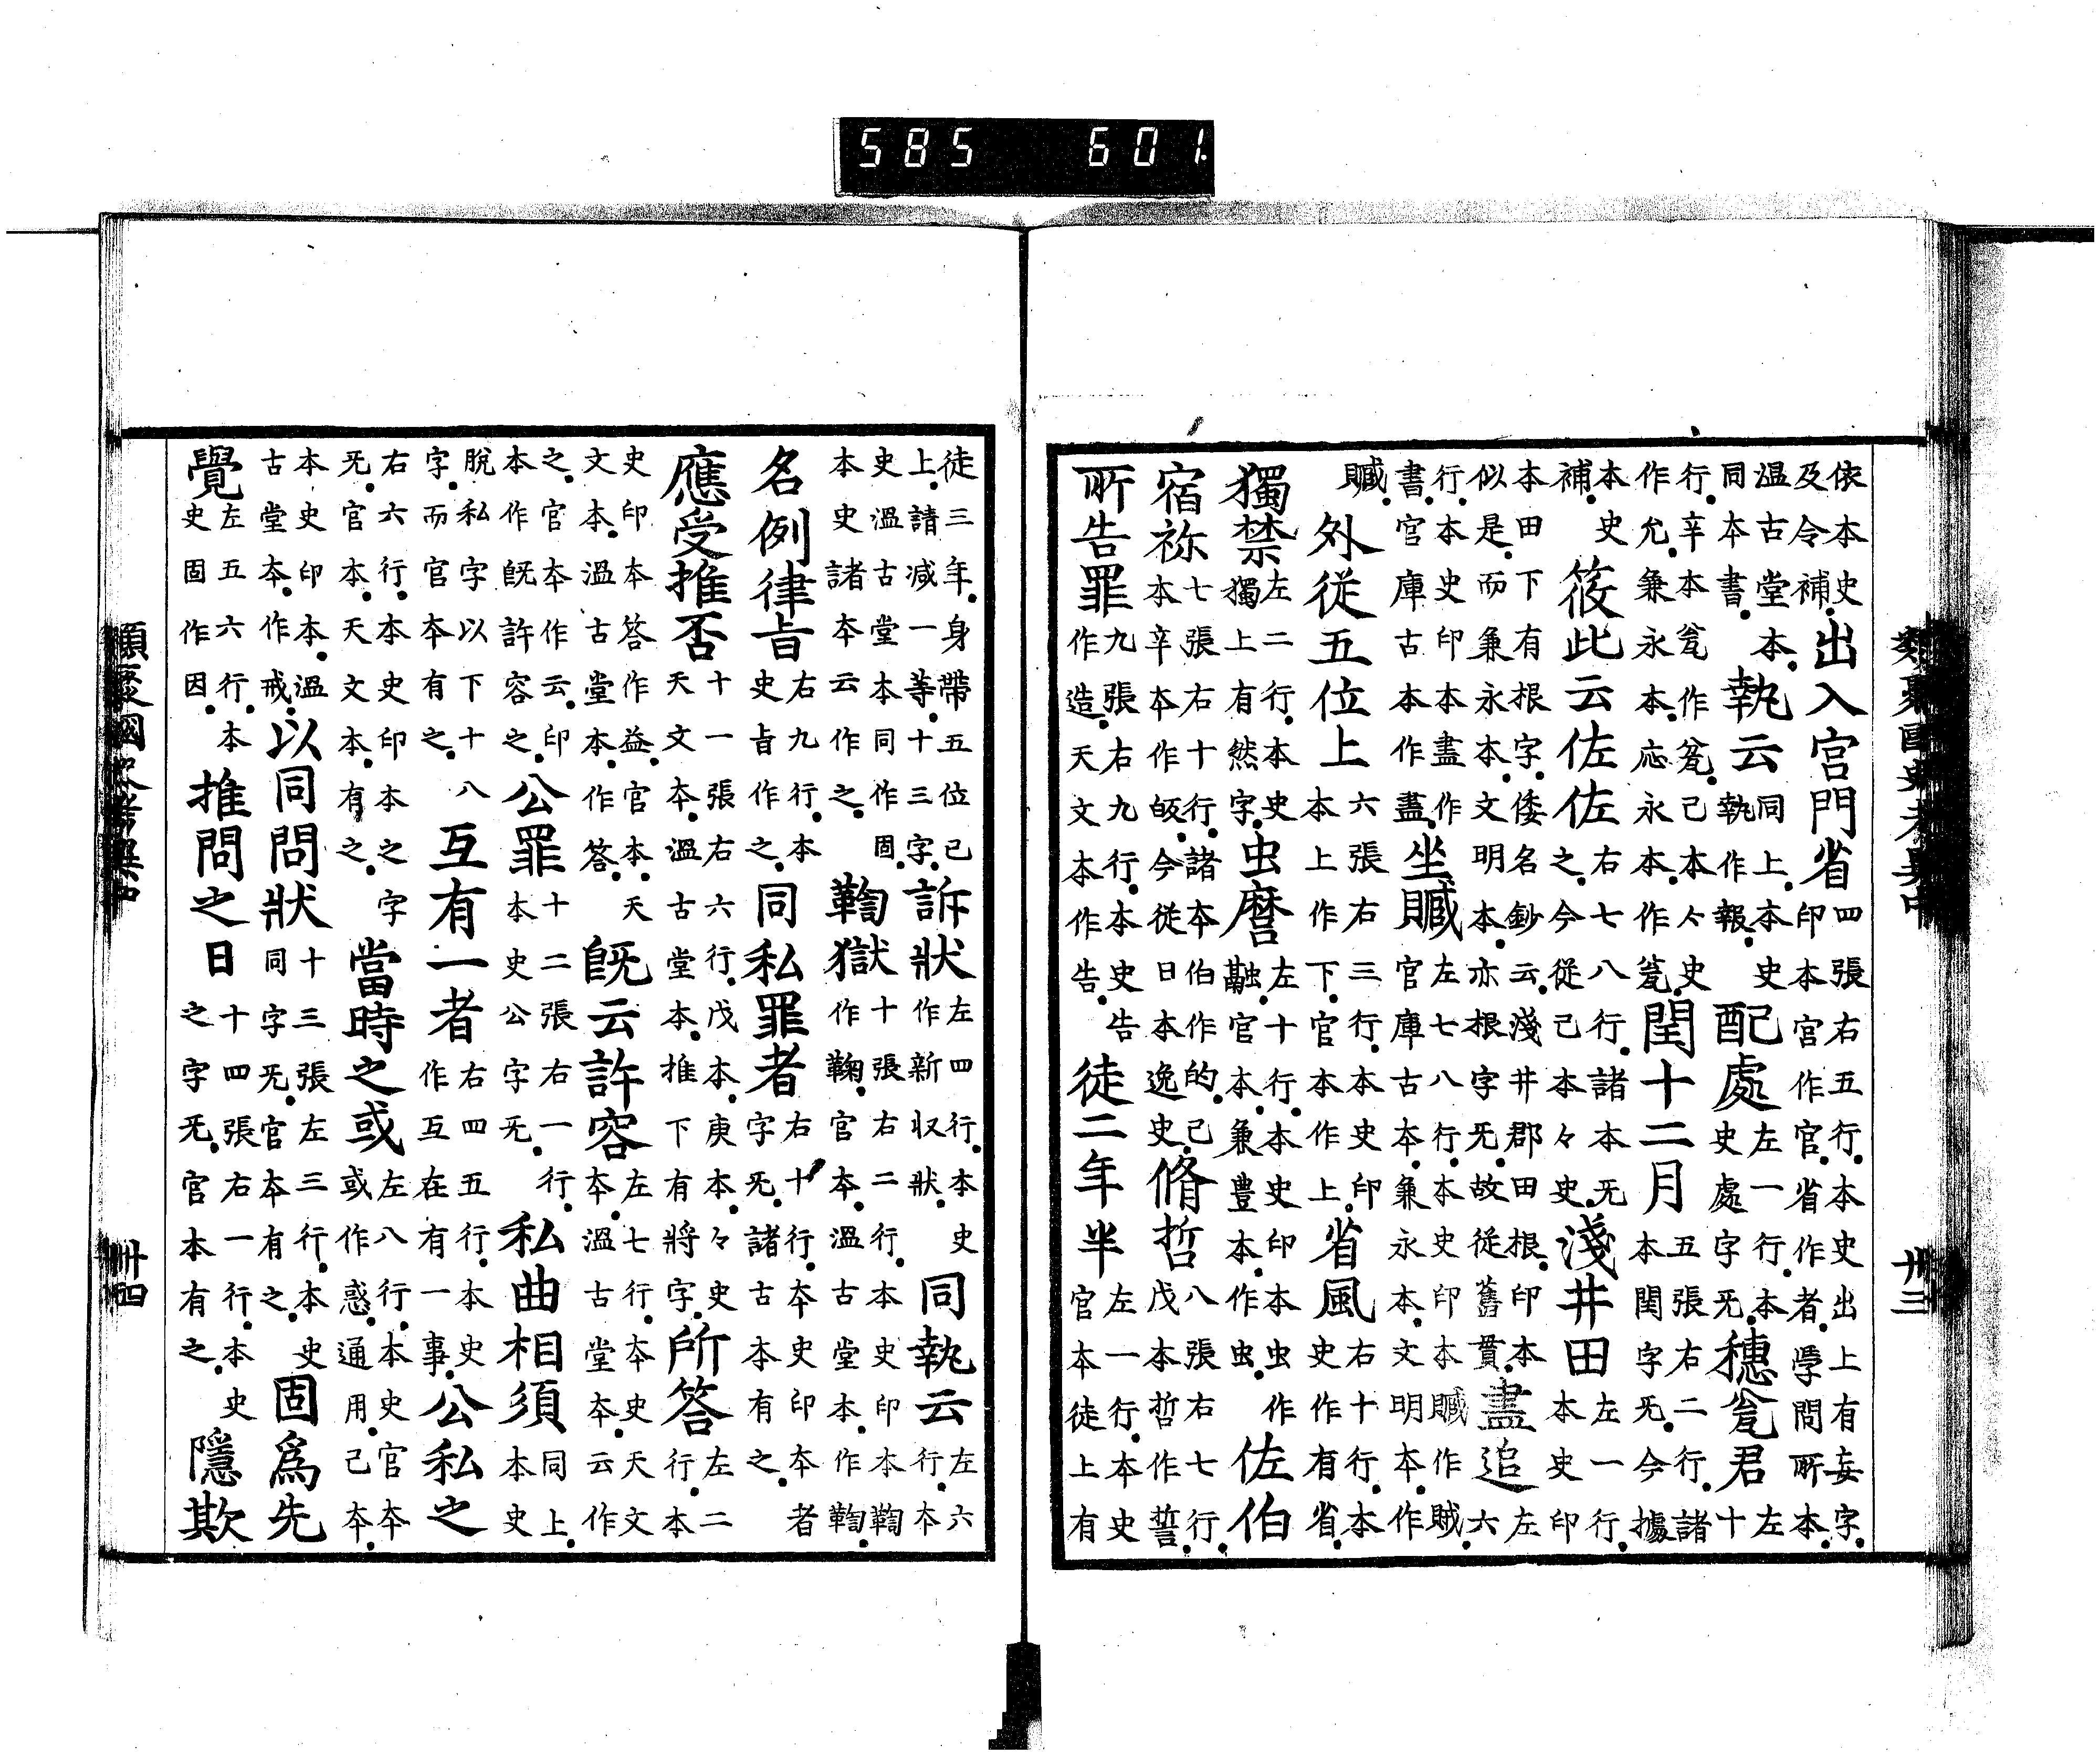 依本史及令補。出入宮門省四張右五行。本史出上有妄字。印本官作官。省作者。學問所本。
温古堂本。同本書。執云同上。本史執作報。配處左一行。本史處字旡。穗瓮君左十
行。辛本瓮作瓮。己本々史作允。兼永本。応永本作瓮。閏十二月五張右二行。諸本閏字旡。今據
本史補。筱此云佐佐右七八行。諸本旡之。今從己本々史。淺井田左一行。本史印
本田下有根字。倭名鈔云。淺井郡田根。印本似是。而兼永本。文明本。亦根字旡。故從舊貫。盡追左六
行。本史印本盡作書。官庫古本作盡。坐贓左七八行。本史印本贓作賊。官庫古本。兼永本。文明本。作
贓。外從五位上六張右三行。本史印本上作下。官本作上。省風右十行。本史作有省。
獨禁左二行。本史獨上有然字。虫麿左十行。本史印本虫作官本。兼豊本。作虫。佐伯
宿祢七張右十行。諸本伯作的。己本辛本作皈。今從日本逸史。脩哲八張右七行。戊本哲作誓。
所告罪九張右九行。本史告作造。天文本作告。徒二年半左一行。本史官本徒上有
類聚國史考異中
卅三
徒三年。身帶五位已上。請減一等。十三字。訴狀左四行。本史作新収狀。同執云左六行。本
史温古堂本同作固。本史諸本云作之。鞫獄十張右二行。本史印本鞫作鞠。官本。温古堂本。作鞫。
名例律旨右九行。本史旨作之。同私罪者右十行。本史印本者字旡。諸古本有之。
應受推否十一張右六行。戊本。庚本。々史天文本。温古堂本。推下有將字。所答左二行。本
史印本答作益。官本。天文本。温古堂本。作答。既云許容左七行。本史天文本。温古堂本。云作
之。官本作云。印本作既許容之。公罪十二張右一行。本史公字旡。私曲相須同上。本史
脫私字以下十八字。而官本有之。互有一者右四五行。本史作互在有一事。公私之
右六行。本史印本之字旡。官本。天文本。有之。當時之或左八行。本史官本或作惑。通用。己本。
本史印本。温古堂本。作戒。以同問狀十三張左三行。本史同字旡。官本有之。固爲先
覺左五六行。本史固作因。推問之日十四張右一行。本史之字旡。官本有之。隱欺
類聚國史考異中
卅四
585 601